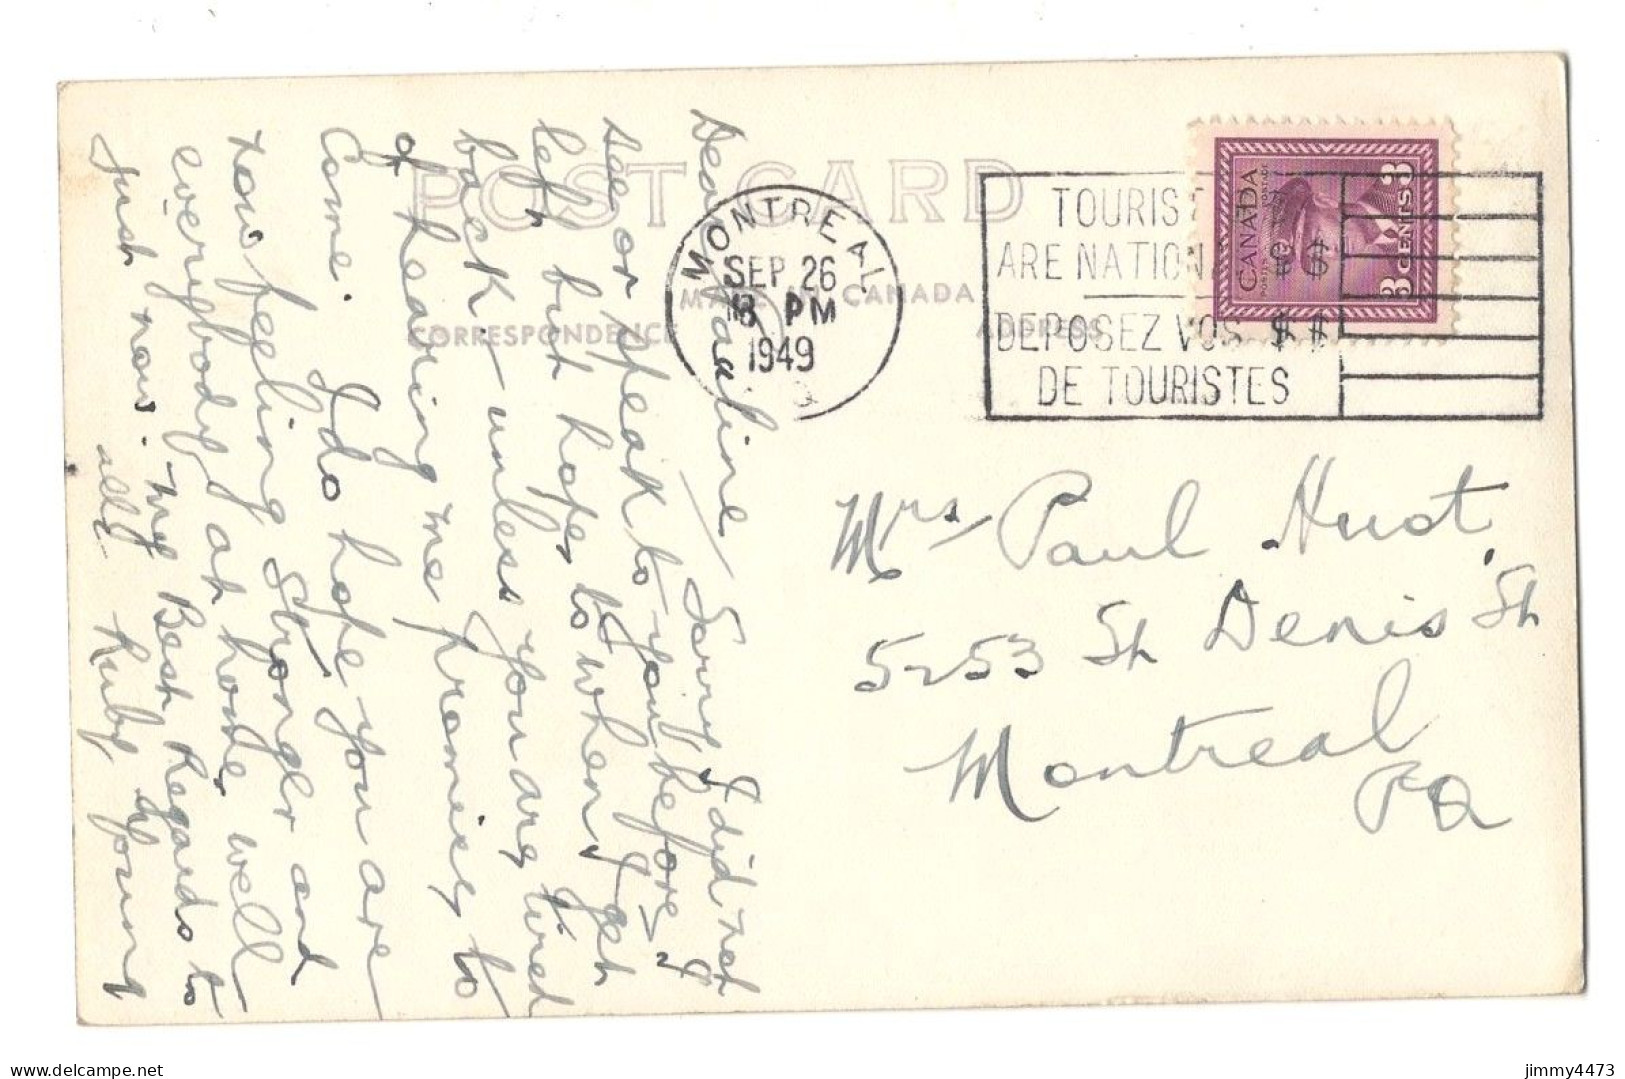 POST CARD
MADE IN CANADA
CORRESPONDENCE
ADDRESS
MONTREAL
SEP 26
PM
1949
TOURIS
ARE NATION
DEPOSEZ VOS $$
DE TOURISTES
CANADA
POSTES POSTAGE
3 CENTS 3
Mrs Paul Huot.
5253 St Denis St
Montreal
PQ
Dear Madeline / Sorry I did not
see or speak to you before I
left but hope to when I get
back – unless you are tired
of hearing me promise to
Come. I do hope you are
now feeling Stronger and
everybody at home well
just now. My Best Regards to
all Ruby Young
delcampe.net
jimmy4473